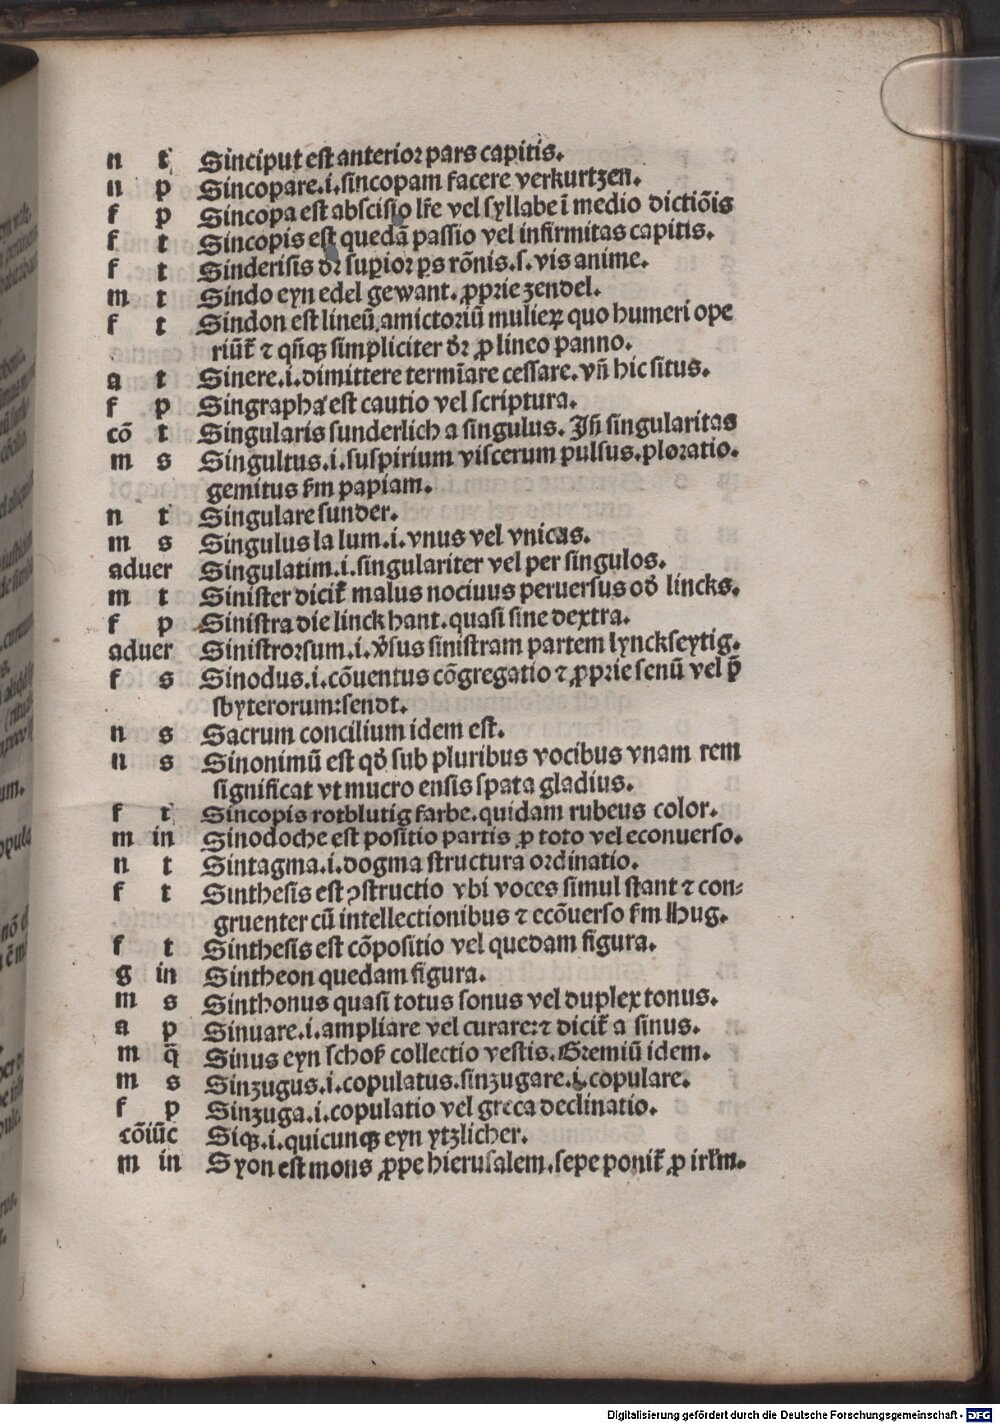 n t Sinciput est anterior pars capitis.
n p Sincopare.i.sincopam facere verkurtzen.
f p Sincopa est abscisio lr̄e vel syllabe ī medio dictiōis
f t Sincopis est quedā passio vel infirmitas capitis.
f t Sinderisis dr̄ supior ps rōnis.s.vis anime.
m t Sindo eyn edel gewant.ꝓprie zendel.
f t Sindon est lineū amictoriū mulieꝝ quo humeri ope
riūt̄ ⁊ qn̄qꝫ simpliciter dr̄ ꝓ lineo panno.
a t Sinere.i.dimittere termīare cessare.vn̄ hic situs.
f p Singrapha est cautio vel scriptura.
cō t Singularis sunderlich a singulus. Jn̄ singularitas
m s Singultus.i.suspirium viscerum pulsus.ploratio.
gemitus ẜm papiam.
n t Singulare sunder.
m s Singulus la lum.i.vnus vel vnicus.
aduer Singulatim.i.singulariter vel per singulos.
m t Sinister dicit̄ malus nociuus peruersus od̄ lincks.
f p Sinistra die linck hant.quasi sine dextra.
aduer Sinistrorsum.i.v̄sus sinistram partem lynckseytig.
f s Sinodus.i.cōuentus cōgregatio ⁊ ꝓprie senū vel p̄
sbyterorum:sendt.
n s Sacrum concilium idem est.
n s Sinonimū est qd̄ sub pluribus vocibus vnam rem
significat vt mucro ensis spata gladius.
f t Sincopis rotblutig farbe.quidam rubeus color.
m in Sinodoche est positio partis ꝓ toto vel econuerso.
n t Sintagma.i.dogma structura ordinatio.
f t Sinthesis est ꝯstructio vbi voces simul stant ⁊ con⸗
gruenter cū intellectionibus ⁊ ecōuerso ẜm Hug.
f t Sinthesis est cōpositio vel quedam figura.
g in Sintheon quedam figura.
m s Sinthonus quasi totus sonus vel duplex tonus.
a p Sinuare.i.ampliare vel curare:⁊ dicit̄ a sinus.
m q̄ Sinus eyn schoß collectio vestis.Gremiū idem.
m s Sinzugus.i.copulatus.sinzugare.i.copulare.
f p Sinzuga.i.copulatio vel greca declinatio.
cōiūc Siqꝫ.i.quicunqꝫ eyn ytzlicher.
m in Syon est mons ꝓpe hierusalem.sepe ponit̄ ꝓ irlm̄.
Digitalisierung gefördert durch die Deutsche Forschungsgemeinschaft - DFG